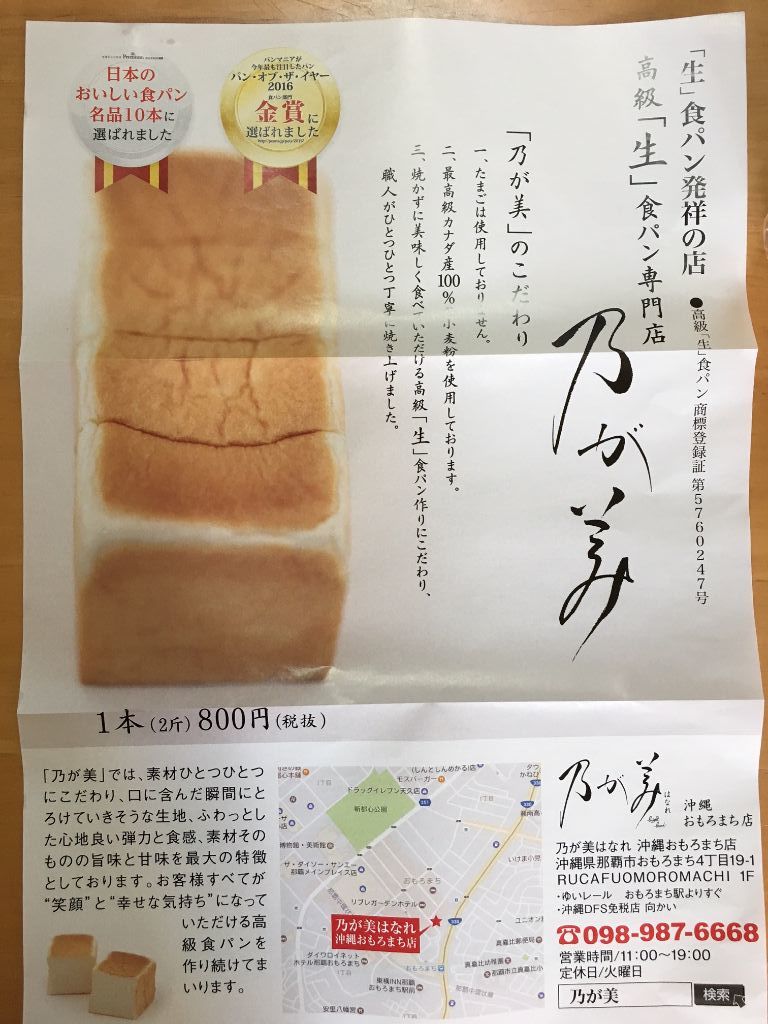 「生」食パン発祥の店
高級「生」食パン専門店
●高級「生」食パン 商標登録証 第5760247号
乃が美
日本の
おいしい食パン
名品10本に
選ばれました
パンマニアが
今年最も注目したパン
パン・オブ・ザ・イヤー
2016
食パン部門
金賞に
選ばれました
「乃が美」のこだわり
一、たまごは使用しておりません。
二、最高級カナダ産100%小麦粉を使用しております。
三、焼かずに美味しく食べていただける高級「生」食パン作りにこだわり、
職人がひとつひとつ丁寧に焼き上げました。
1本(2斤)800円(税抜)
「乃が美」では、素材ひとつひとつ
にこだわり、口に含んだ瞬間にと
ろけていきそうな生地、ふわっとし
た心地良い弾力と食感、素材その
ものの旨味と甘味を最大の特徴
としております。お客様すべてが
“笑顔”と“幸せな気持ち”になって
いただける高
級食パンを
作り続けてま
いります。
(しんとしんめかる店)
モスバーガー
ドラッグイレブン天久店
新都心公園
1丁目
博物館・美術館
ザ・ダイソー・サンエー
那覇メインプレイス店
いけま小児
おもろまち
リブレガーデンホテル
乃が美はなれ
沖縄おもろまち店
ユニオン
真嘉比郵便局
ダイワロイネット
ホテル那覇おもろまち
おもろまち
真嘉比幼稚園
那覇市立真嘉比小
東横INN那覇
おもろまち駅前
安里八幡宮
乃が美
はなれ
沖縄
おもろまち店
乃が美はなれ 沖縄おもろまち店
沖縄県那覇市おもろまち4丁目19-1
RUCAFUOMOROMACHI 1F
・ゆいレール おもろまち駅よりすぐ
・沖縄DFS免税店 向かい
☎098-987-6668
営業時間/11:00〜19:00
定休日/火曜日
乃が美 検索